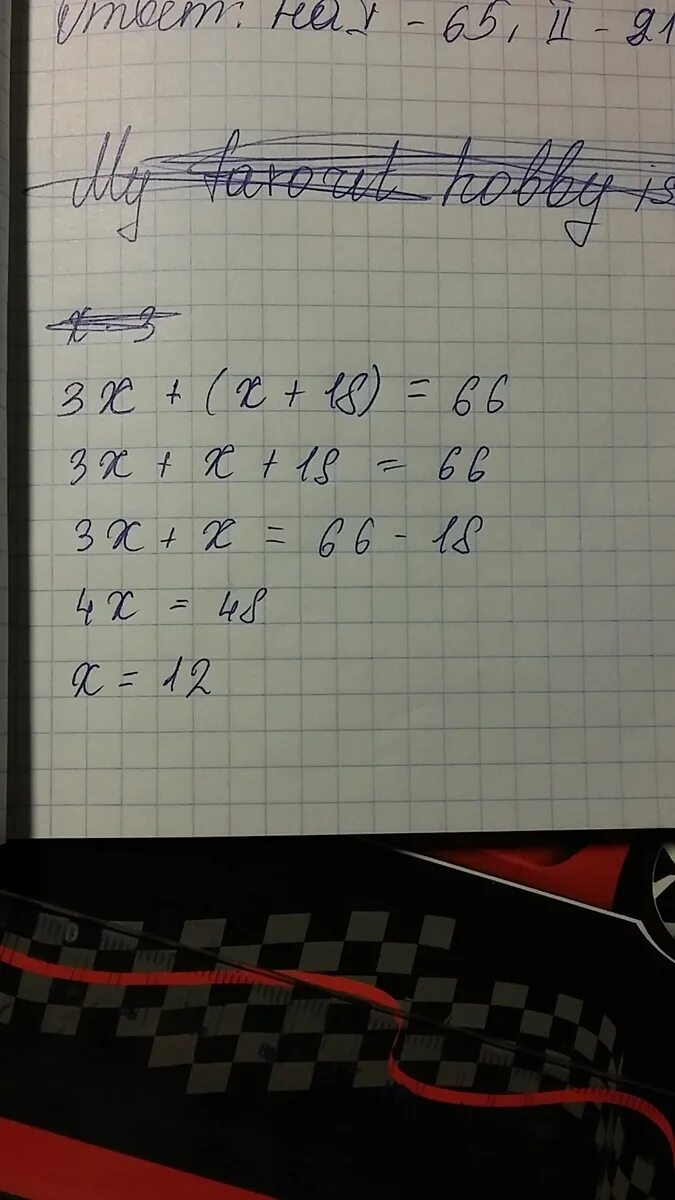 Ответ: на I - 65, II - 21
My favorit hobby is
x - 3
3x + (x + 18) = 66
3x + x + 18 = 66
3x + x = 66 - 18
4x = 48
x = 12